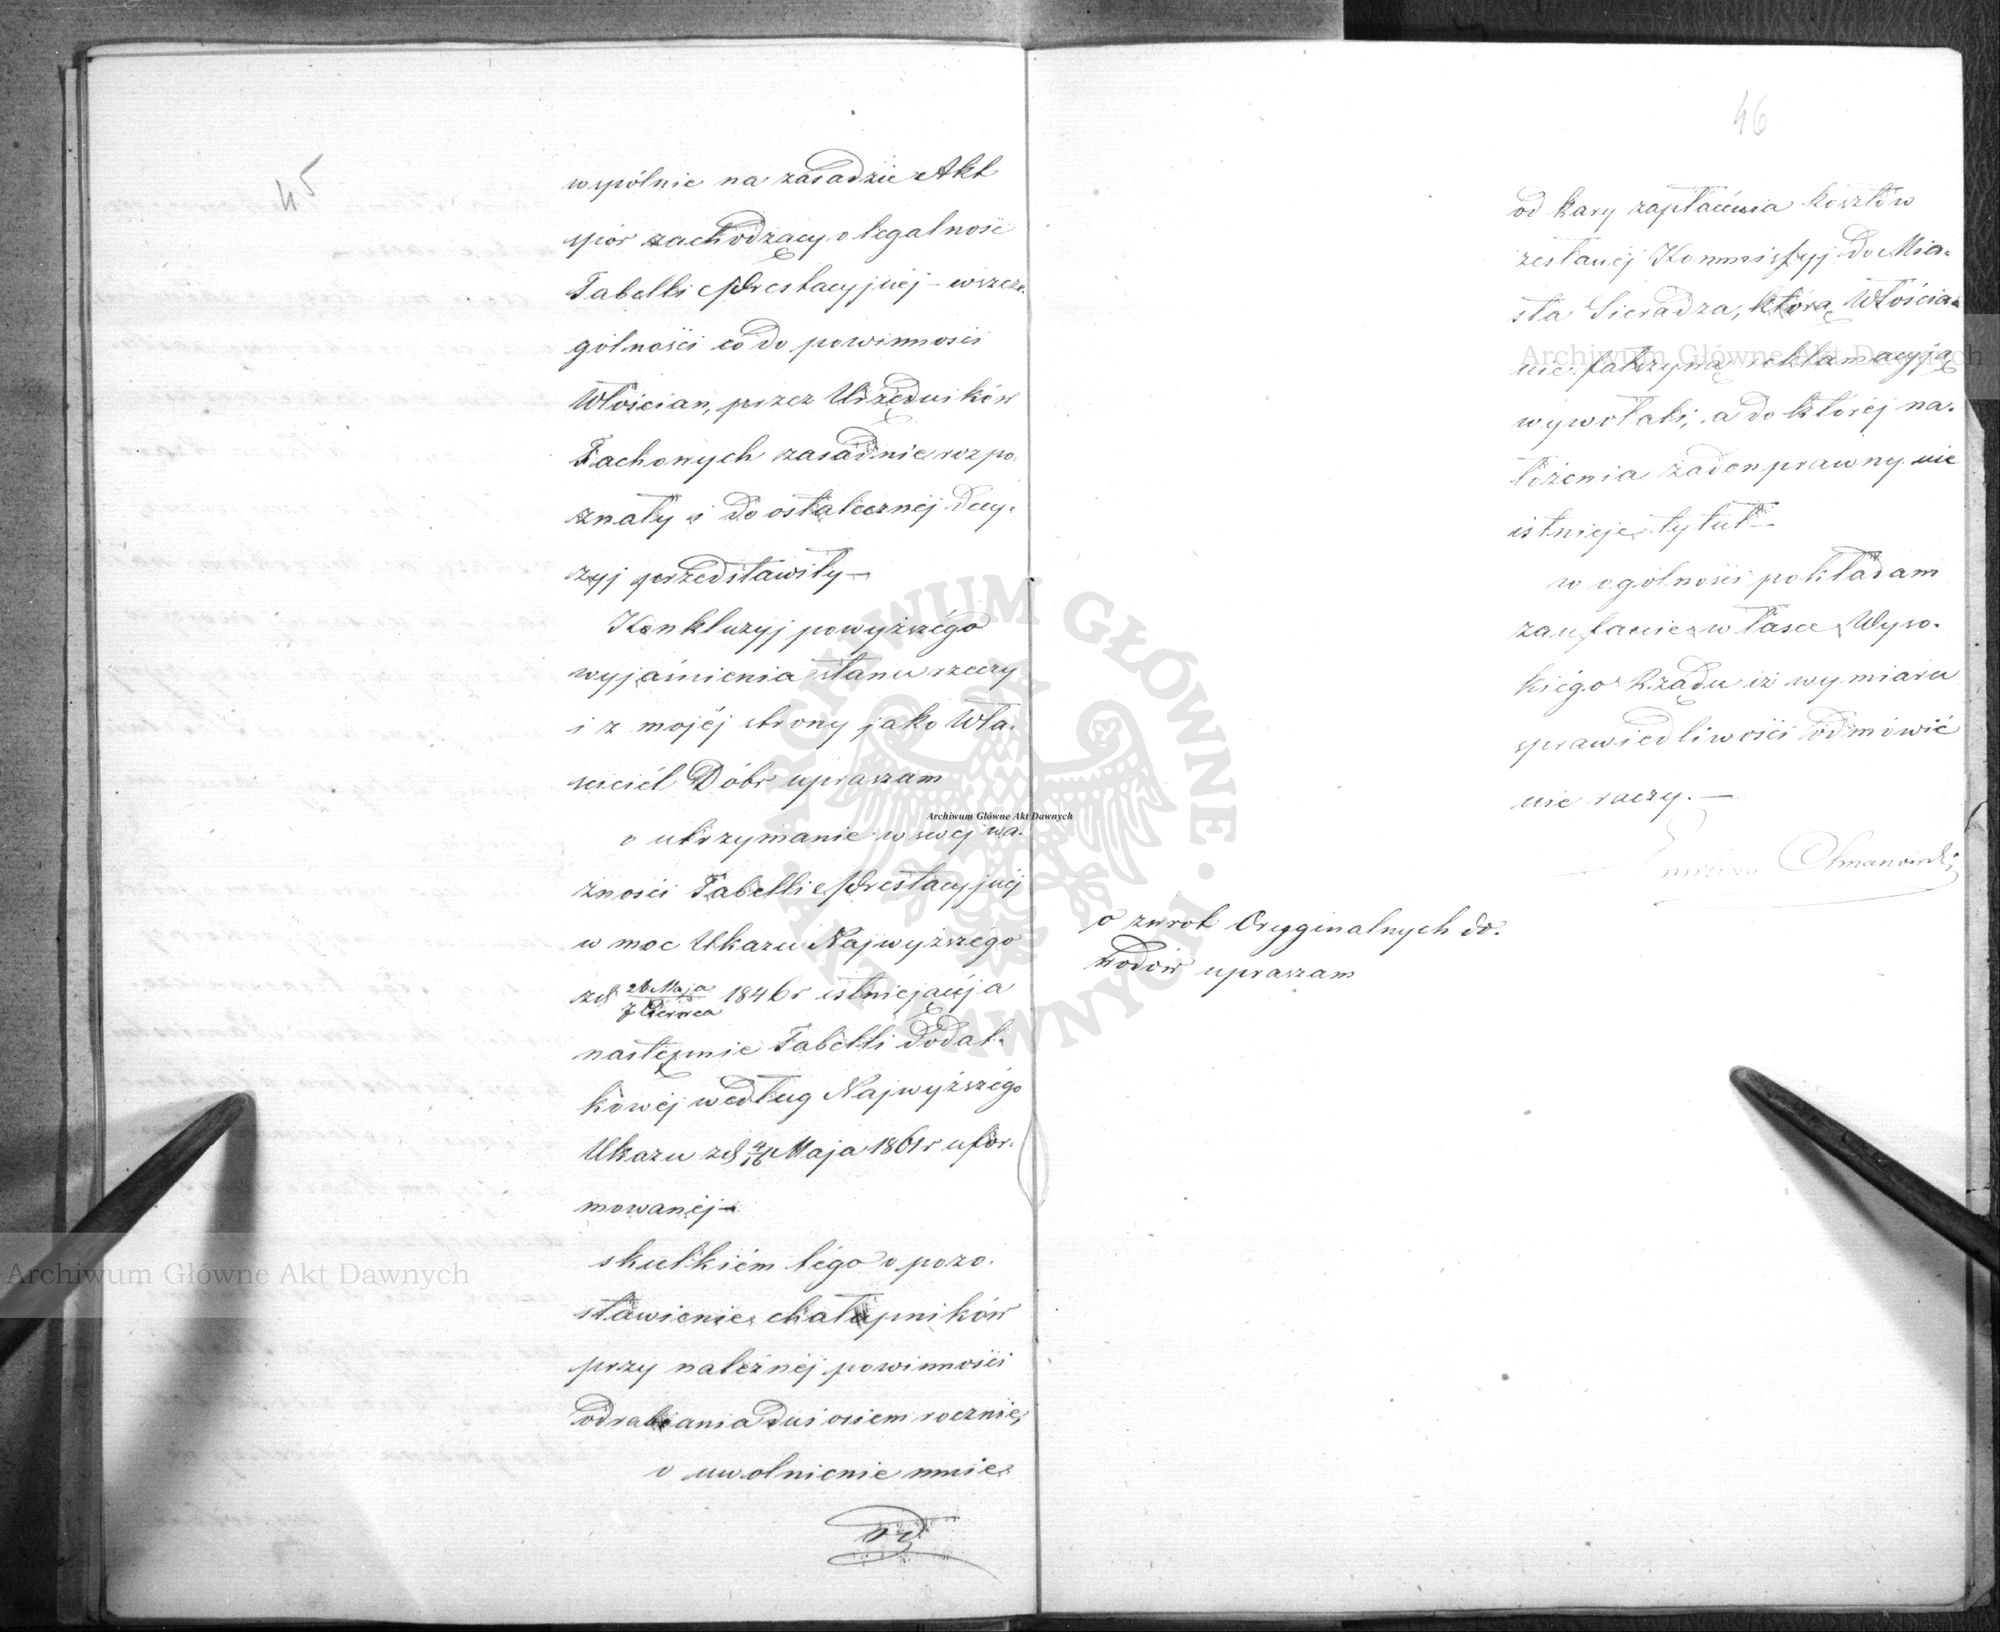 45
wspólnie na zasadzie Akt
spór zachodzący o legalność
Tabelli Prestacyjnej – wszcze-
gólności co do powinności
Włościan, przez Urzędników
Fachowych zasadnie rozpo-
znały i do ostatecznéj decy-
zyj przedstawiły –
Konkluzyj powyższégo
wyjaśnienia stanu rzeczy
i z mojéj strony jako Wła-
ściciél Dóbr upraszam
o utrzymanie w swej wa-
żności Tabelli Prestacyjnéj
w moc Ukazu Najwyższégo
zd 26 Maja / 7 Czerwca 1846 r istniejącéj a
następnie Tabelli Dodat-
kowéj według Najwyższégo
Ukazu zd 4/16 Maja 1861 r ufor-
mowanéj –
skutkiém tégo o pozo-
stawienie chałupników
przy należnéj powinności
odrabiania dni osiem rocznie,
o uwolnienie mnie
od
46
od kary zapłacenia kosztów
zesłanéj Kommissyj do Mia-
sta Sieradza, którą Włościa-
nie fałszywą reklamacyją
wywołali, a do któréj na-
łożenia żaden prawny nie
istnieje tytuł –
w ogólności pokładam
zaufanie w łasce Wyso-
kiégo Rządu iż wymiaru
sprawiedliwości odmówić
nie raczy. –
o zwrot Oryginalnych do-
wodów upraszam
Archiwum Główne Akt Dawnych
Archiwum Główne Akt Dawnych
Archiwum Główne Akt Dawnych
ARCHIWUM GŁÓWNE AKT DAWNYCH